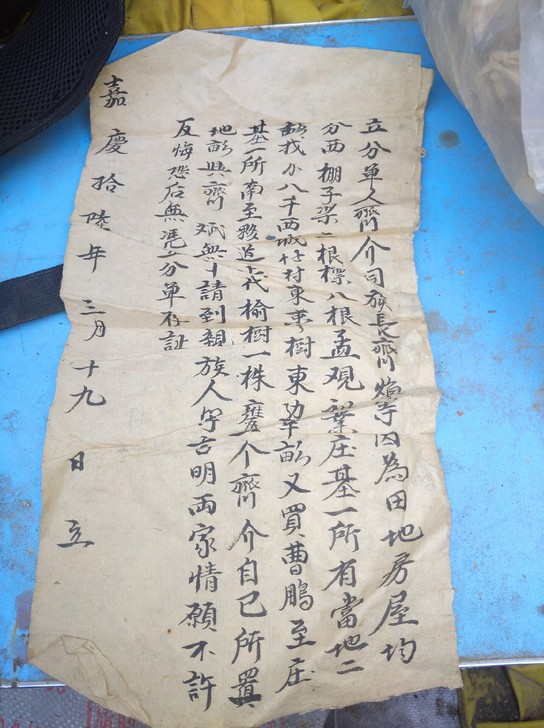 立分单人齊介同族長齊 等因為田地房屋均
分西棚子梁二根檁八根孟观 庄基一所有當地二
畝 八千西城 村東 樹東 畝又買曹鵬至庄
基一所南至 道 代榆樹一株 个齊介自己所置
地畝與齊 無干請到親族人 言明两家情願不許
反悔恐后無凭立分单存証
嘉慶拾陸年三月十九日立